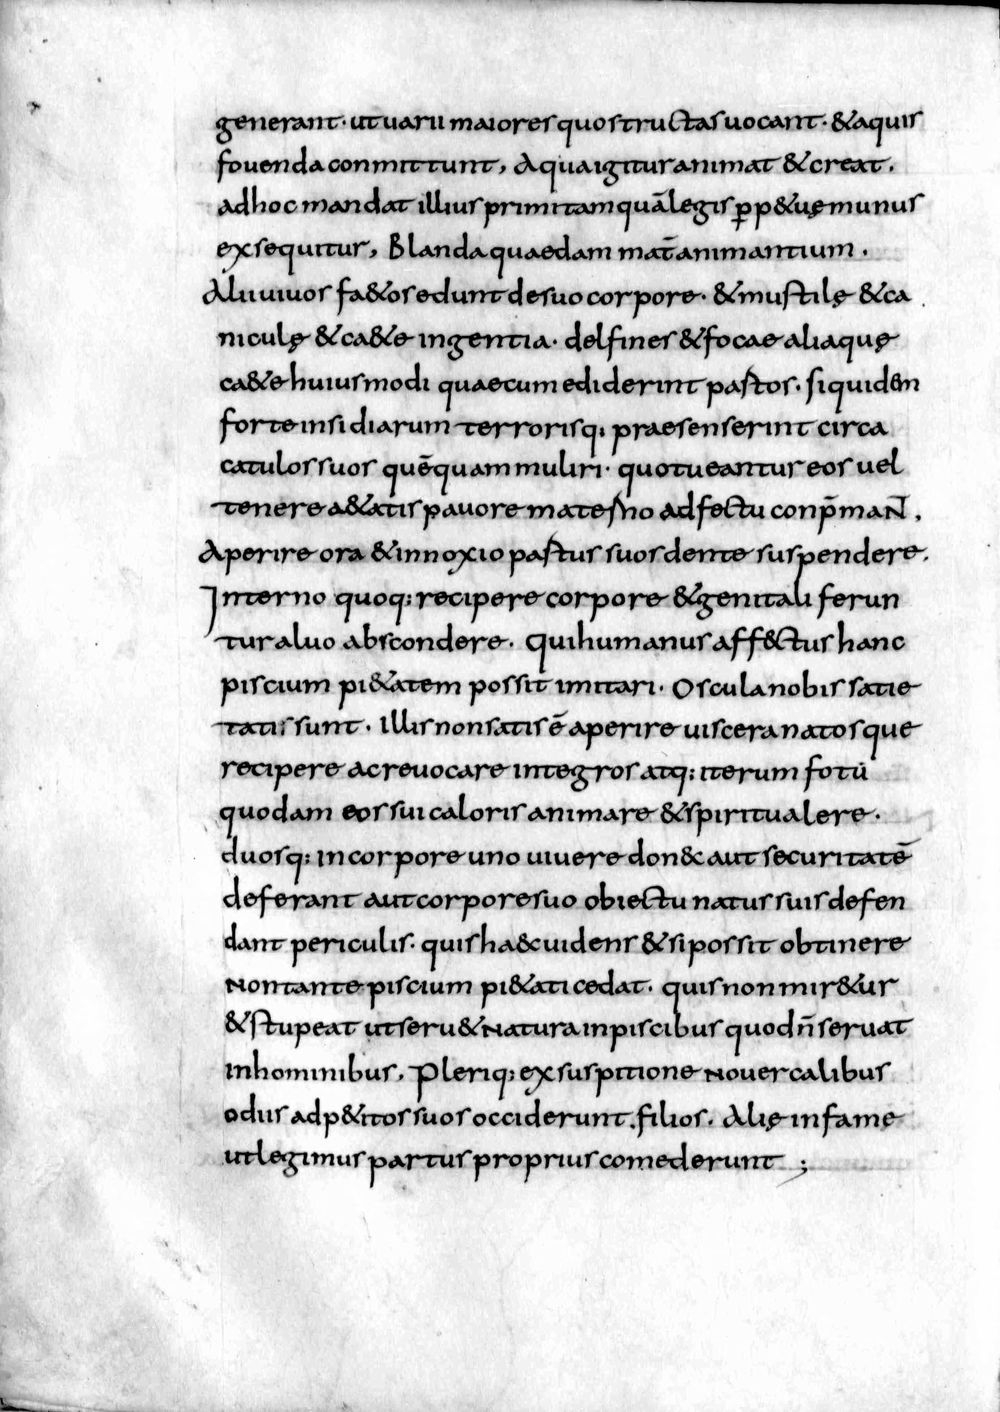 generant · ut uarii maiores quos tructas uocant · & aquis
fouenda conmittunt, Aqua igitur animat & creat .
adhoc mandat illius primitam quā legis ꝑp&uę munus
exsequitur, Blanda quaedam mat̄ animantium .
Alii uiuos fa&os edunt de suo corpore · & mustilę & ca
niculę & ca&e ingentia · delfines & focae aliaquę
ca&e huiusmodi quae cum ediderint pastos . si quidem
forte insidiarum terrorisq; praesenserint circa
catulos suos quēquam muliri · quo tueantur eos uel
tenere a&atis pauore materno adfectu conp̄maNT ,
Aperire ora & innoxio pastus suos dente suspendere .
Interno quoq; recipere corpore & genitali ferun
tur aluo abscondere · Qui humanus aff&ctus hanc
piscium pi&atem possit imitari · Oscula nobis satie
tatis sunt · illis non satis ē aperire uiscera natosque
recipere ac reuocare integros atq; iterum fotū
quodam eos sui caloris animare & spiritu alere ·
duosq; in corpore uno uiuere don& aut securitatē
deferant aut corpore suo obiectu natus suis defen
dant periculis · quis ha&c uidens & si possit obtinere
non tante piscium pi&ati cedat · quis non mir&ur
& stupeat ut seru& natura in piscibus quod n̄ seruat
in hominibus, Pleriq; ex suspitione nouercalibus
odiis adp&itos suos occiderunt . filios . Alię in fame
ut legimus partus proprius comederunt ;